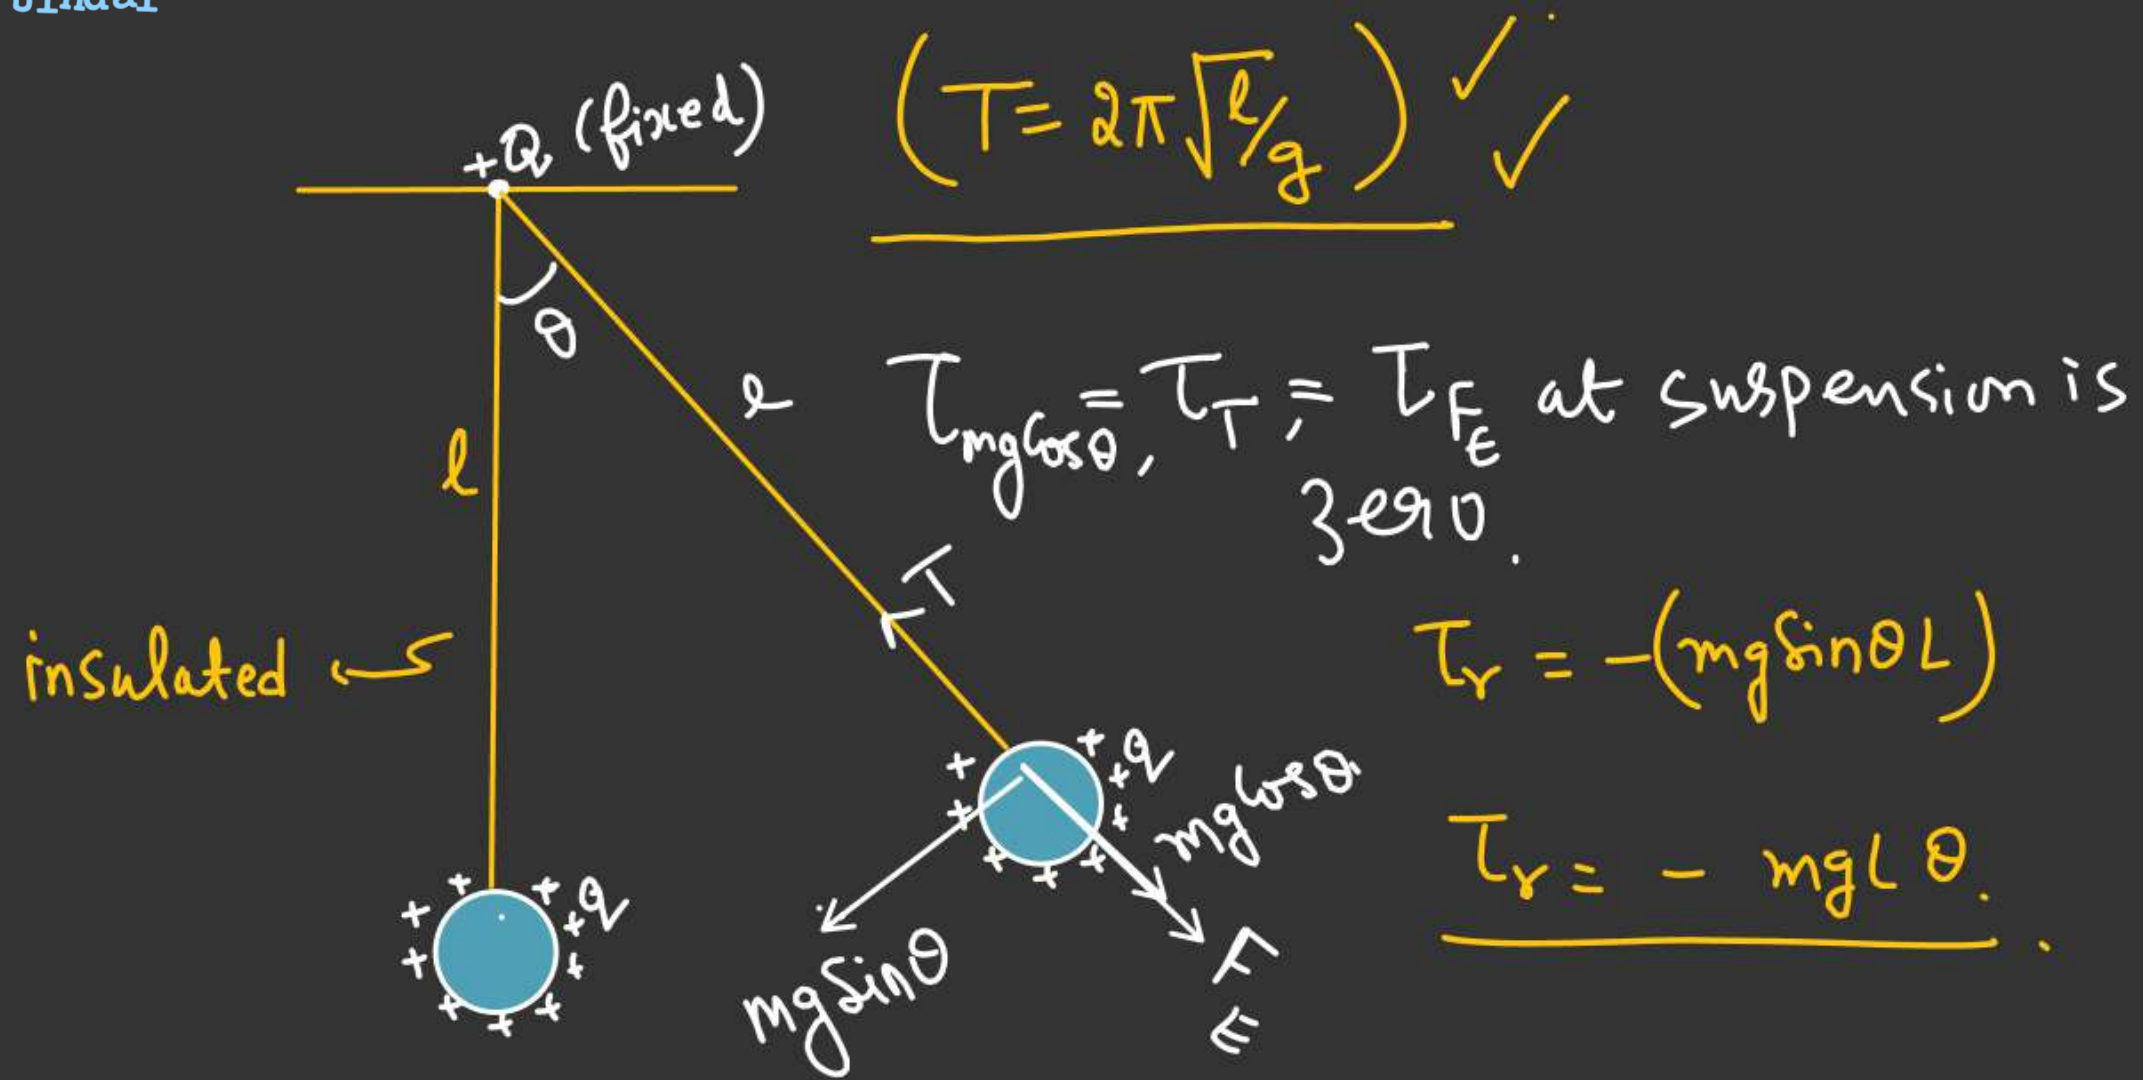 +Q (fixed)
(T = 2π√l/g) ✓ ✓
θ
l
l
τ_mgcosθ, = τ_T, = τ_F_E at suspension is
zero.
T
insulated
τ_r = -(mg sinθ L)
+ + + + + + + + q
mg cosθ
τ_r = - mgL θ.
+ + + + + + + + q
mg sinθ
F_E